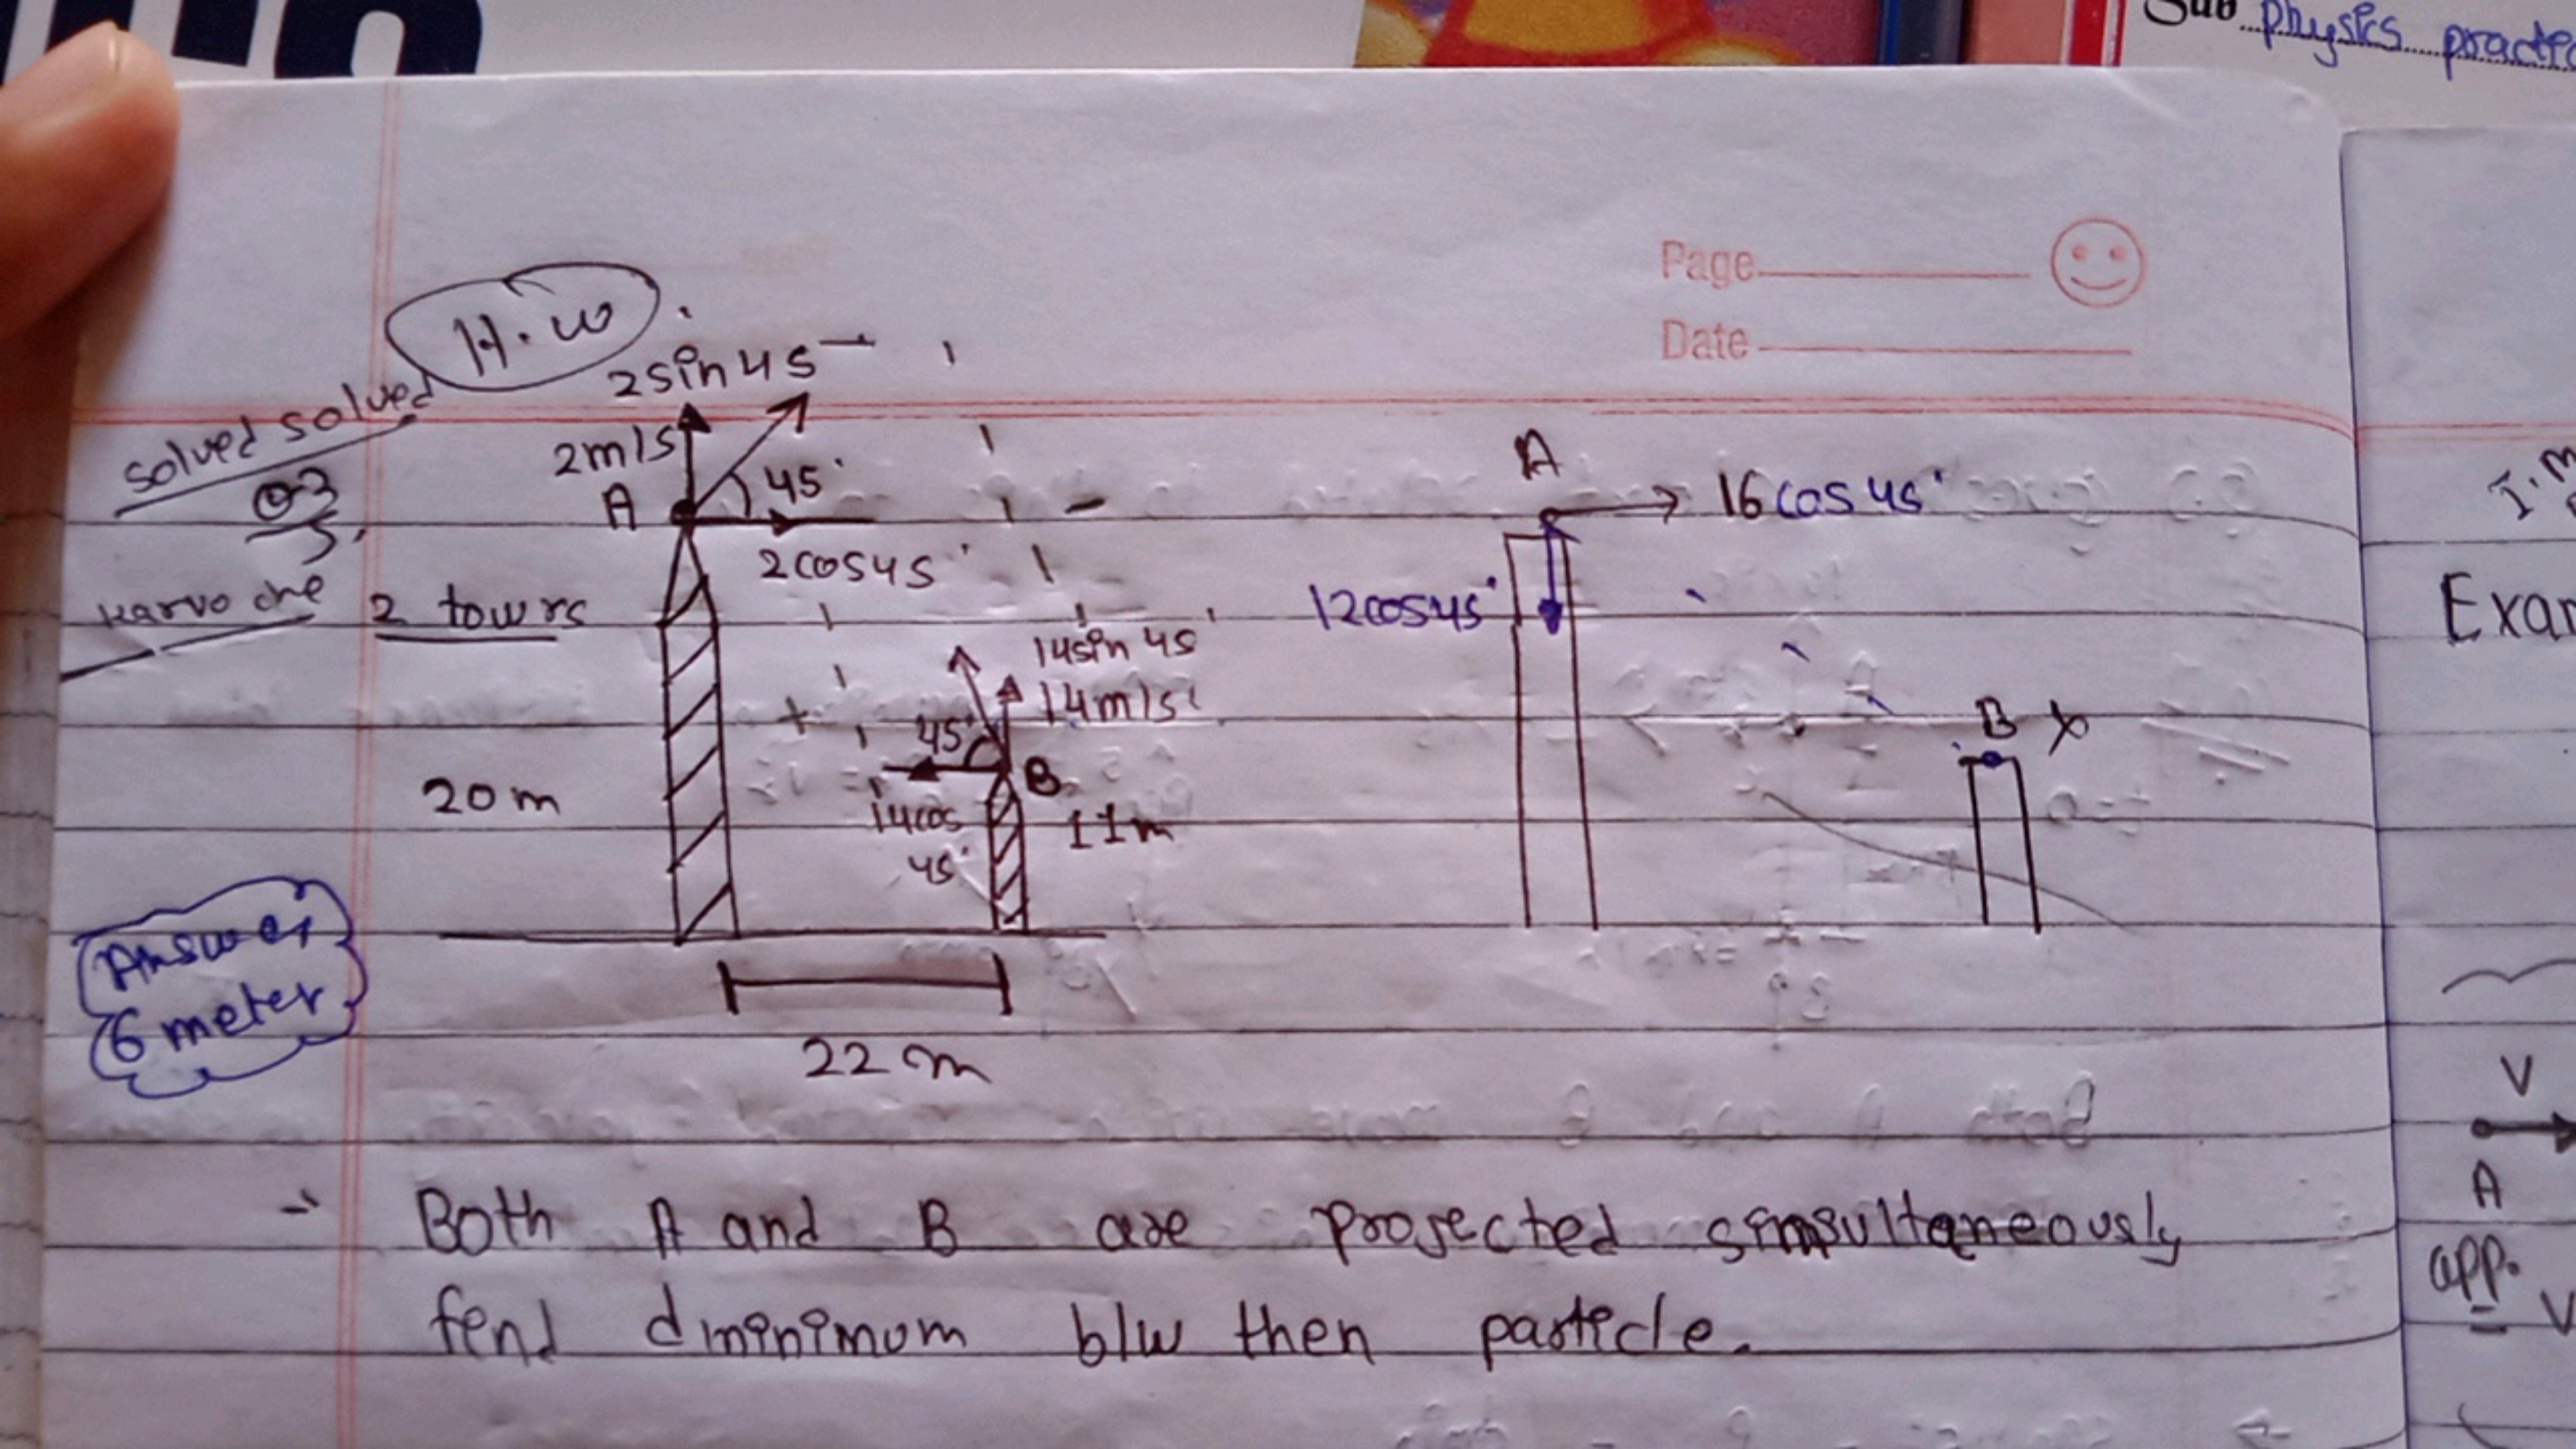 Sub physics
Page
Date
H.W
solved solved
Q3
karvo che
2sin45
2m/s
45°
A
2cos45°
2 towrs
14sin 45
14m/s
45°
B
14cos
45°
11m
20 m
22 m
A
16cos45°
12cos45°
B
Answer
6 meter
Both A and B are projected simsultaneously
fend dminimum b/w then particle.
Exam
V
A
app.
V